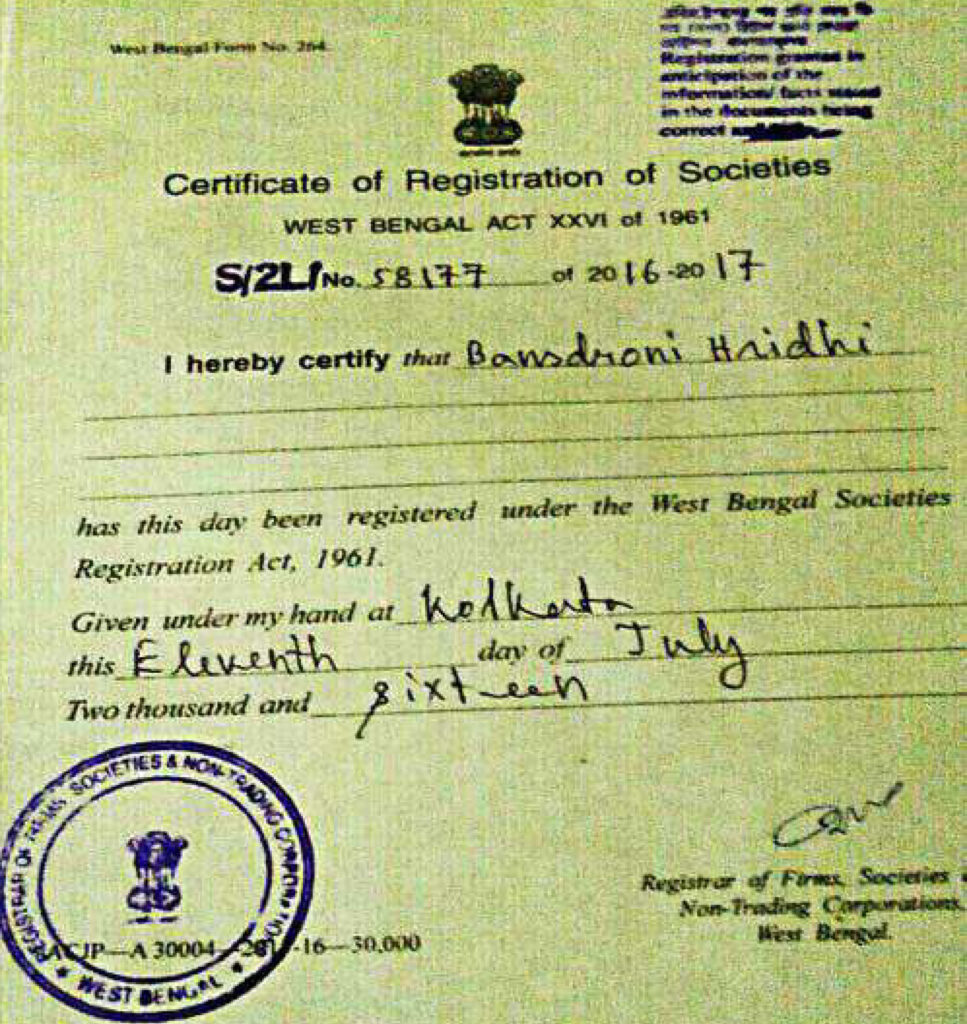 West Bengal Form No. 264
Registration granted in
anticipation of the
information/ facts stated
in the documents being
correct
Certificate of Registration of Societies
WEST BENGAL ACT XXVI of 1961
S/2L/No. 58177 of 2016-2017
I hereby certify that Bansdroni Hridhi
has this day been registered under the West Bengal Societies
Registration Act, 1961.
Given under my hand at Kolkata
this Eleventh day of July
Two thousand and sixteen
REGISTRAR OF FIRMS, SOCIETIES & NON-TRADING CORPORATION
WEST BENGAL
Registrar of Firms, Societies
Non-Trading Corporations,
West Bengal.
A 30004 -16—30,000